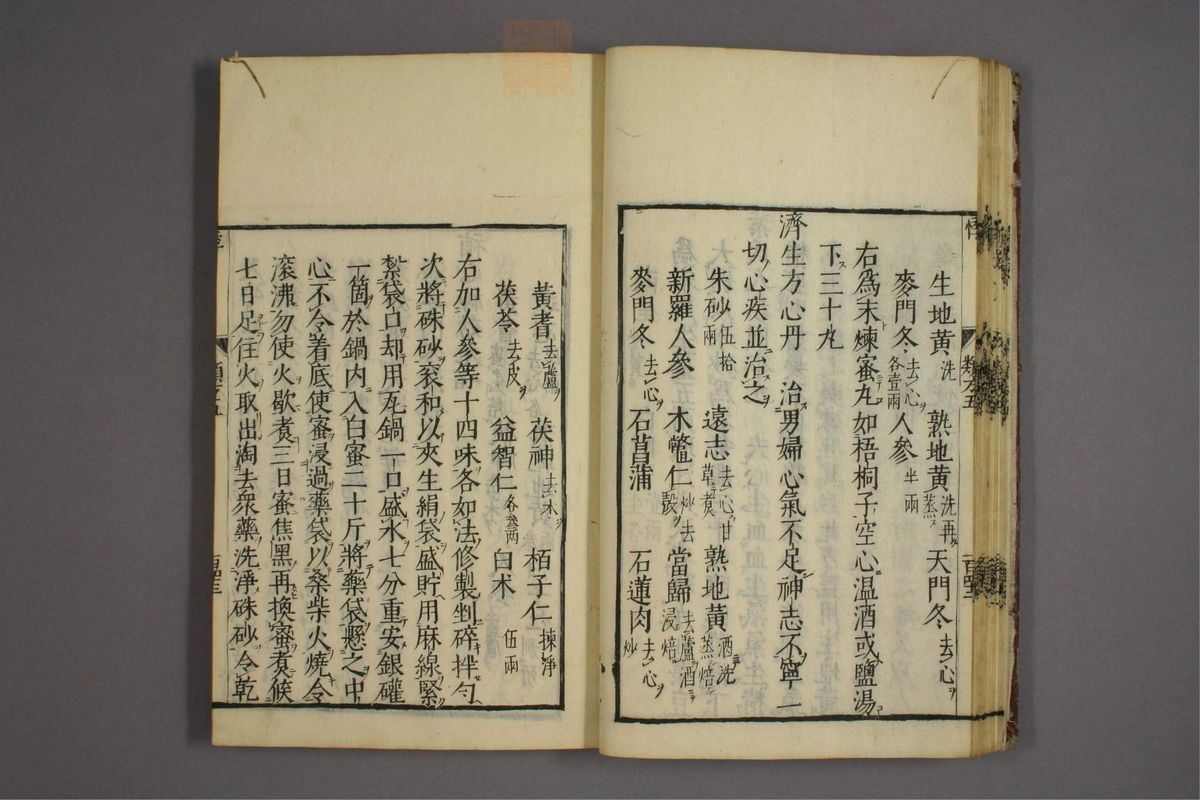 生地黃洗 熟地黃洗再蒸 天門冬去心
麥門冬去心各壹兩 人參半兩
右爲末煉蜜丸如梧桐子空心温酒或鹽湯
下三十丸
濟生方心丹 治男婦心氣不足神志不寧一
切心疾並治之
朱砂伍拾兩 遠志去心甘草煮 熟地黃酒洗蒸焙
新羅人參 木鱉仁炒去殼 當歸去蘆酒浸焙
麥門冬去心 石菖蒲 石蓮肉去心炒
黃耆去蘆 茯神去木 栢子仁揀淨
茯苓去皮 益智仁各叁兩 白术伍兩
右加人參等十四味各如法修製剉碎拌勻
次將硃砂滾和以夾生絹袋盛貯用麻線緊
紮袋口却用瓦鍋一口盛水七分重安銀礶
一箇於鍋内入白蜜二十斤將藥袋懸之中
心不令着底使蜜浸過藥袋以桑柴火燒令
滾沸勿使火歇煮三日蜜焦黑再換蜜煮候
七日足住火取出淘去衆藥洗淨硃砂令乾